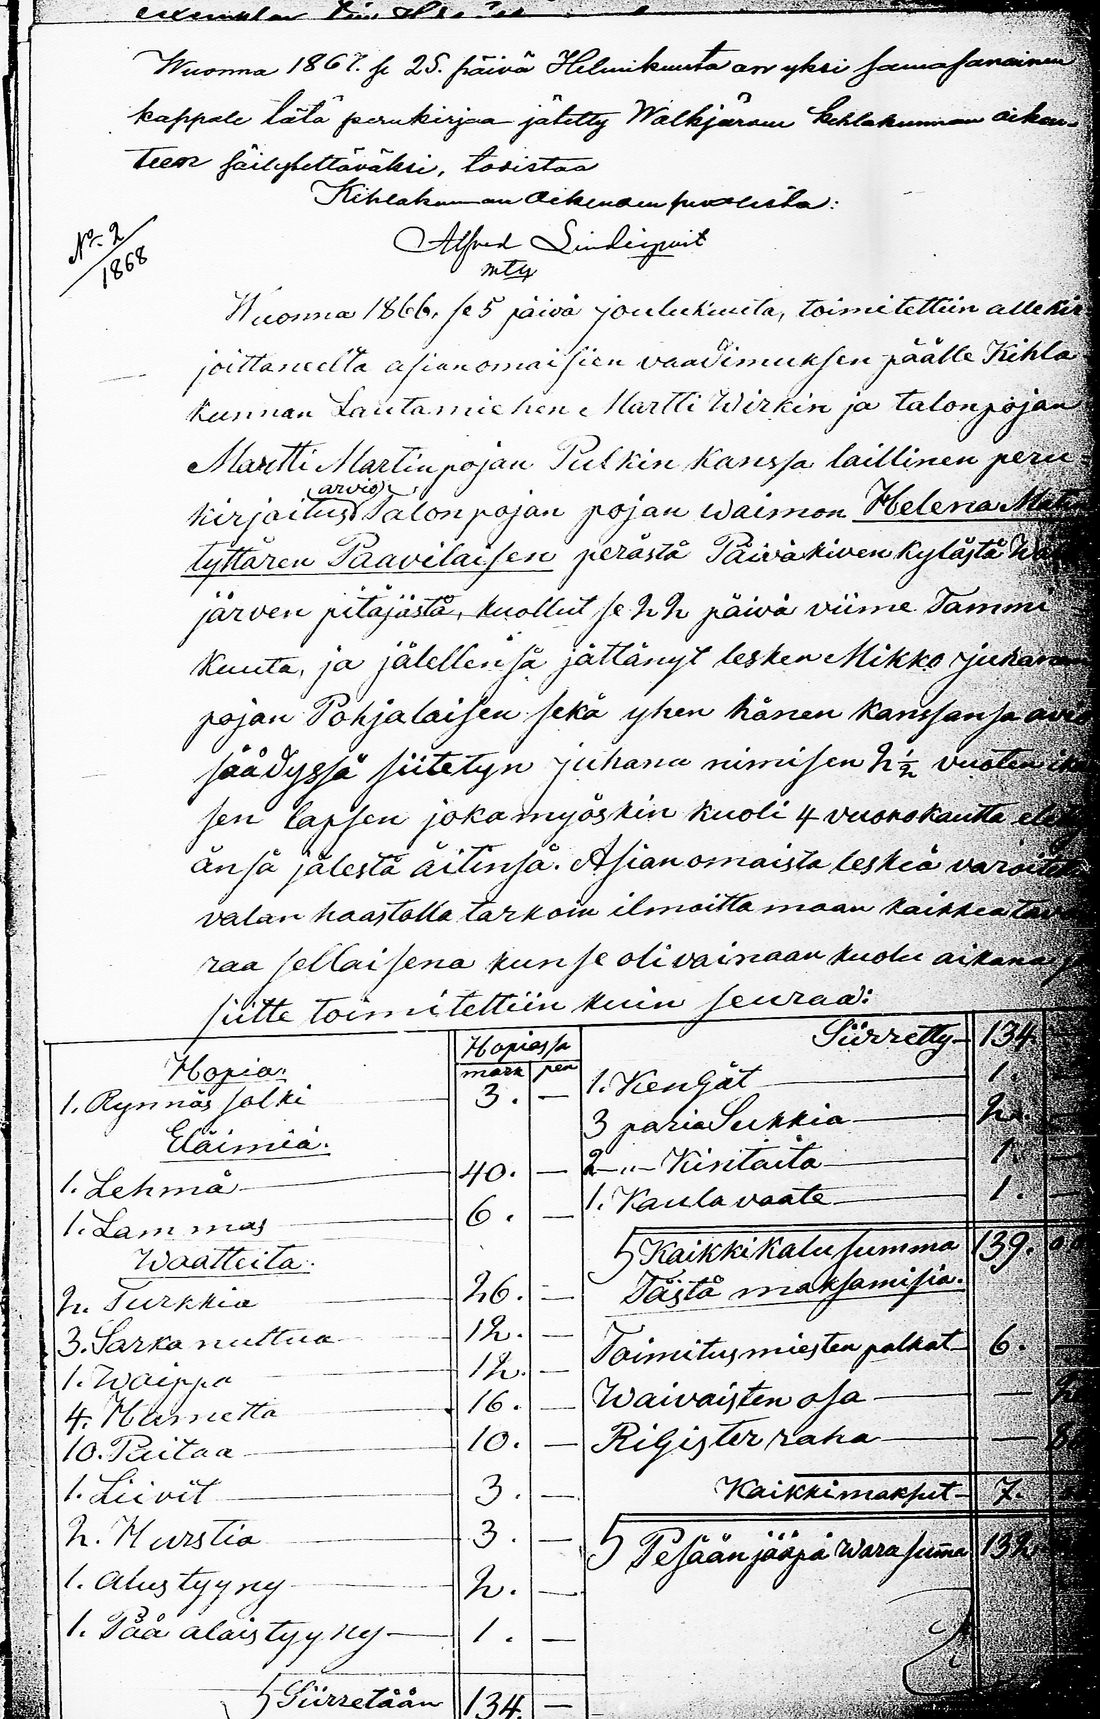 Wuonna 1867. se 25. päivä Helmikuuta on yksi samasanainen
kappale tätä perukirjaa jätetty Walkjärven kihlakunnan oikeu-
teen säilytettäväksi, todistaa
Kihlakunnan Oikeuden puolesta:
Alfred Lindeqvist
No. 2
1868
Wuonna 1866. se 5 päivä joulukuuta, toimitettiin allekir
joittaneelta asianomaisien vaadimuksen päälle Kihla
kunnan Lautamiehen Martti Wirkin ja talonpojan
Martti Martinpojan Pulkin kanssa laillinen peru-
kirjoitus (arvio) Talonpojan pojan waimon Helena Mati
tyttären Paavilaisen perästä Päiväkiven kylästä Walk
järven pitäjästä, kuollut se 22 päivä viime Tammi
kuuta, ja jälellensä jättänyt lesken Mikko Juhanan
pojan Pohjalaisen sekä yhen hänen kanssansa avio
säädyssä siitetyn juhana nimisen 2 1/2 vuoten ikä
sen lapsen joka myöskin kuoli 4 vuorokautta
änsä jälestä äitinsä. Asianomaista leskiä varoitettiin
valan haastolla tarkoin ilmoittamaan kaikkea tava
raa sellaisena kun se oli vainaan kuolu aikana ja
siitte toimitettiin kuin seuraa:
Hopiassa
mark pen
Hopia:
1. Rynnäs solki 3. —
Eläimiä:
1. Lehmä 40. —
1. Lammas 6. —
Waatteita:
2. Turkkia 26. —
3. Sarka nuttua 12. —
1. Waippa 12. —
4. Hametta 16. —
10. Paitaa 10. —
1. Liivit 3. —
2. Hurstia 3. —
1. alustyyny 2. —
1. Pää alaistyyny 1. —
Siirretään 134. —
Siirretty 134
1. Kengät 1.
3 paria Sukkia 2.
2 -"- Kintaita 1.
1. Kaulavaate 1. —
Kaikki kalu summa 139.
Tästä maksamisia:
Toimitusmiesten palkat 6. —
Waivaisten osa —
Rigister raha —
Kaikki maksut 7.
Pesään jääpä wara summa 132